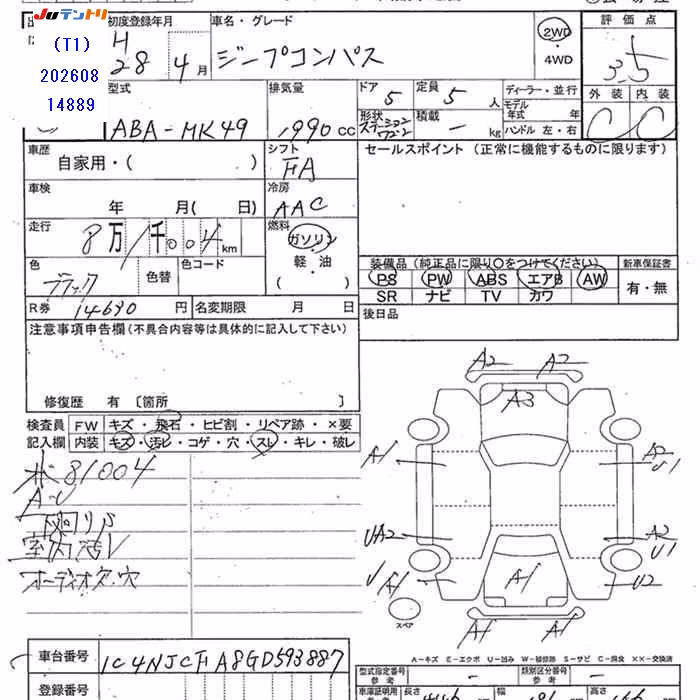 JUテントリ
初度登録年月
車名・グレード
評価点
(T1)
202608
14889
H
28 4月
ジープコンパス
2WD
・
4WD
3.5
型式
排気量
ドア
定員
ディーラー・並行
外装 内装
ABA-MK49
1990 cc
5
5 人
モデル年式 年
形状
積載
- kg
ハンドル 左・右
C C
車歴
シフト
セールスポイント (正常に機能するものに限ります)
自家用・( )
FA
車検
冷房
年 月( 日)
AAC
走行
燃料
8万1千004km
ガソリン
軽・油
( )
色
色替
色コード
ブラック
装備品 (純正品に限り○をつけてください)
新車保証書
PS PW ABS エアB AW
有・無
SR ナビ TV カワ
R券 14690円
名変期限 月 日
後日品
注意事項申告欄 (不具合内容等は具体的に記入して下さい)
修復歴 有 〔箇所 〕
検査員
記入欄
FW キズ・飛石・ヒビ割・リペア跡・×要
内装 キズ・汚レ・コゲ・穴・スレ・キレ・破レ
81004
A・U
下回りS
室内汚レ
オーディオ穴・穴
A2 A2
A3
A1
A2
U1
UA2
A2
U1
U A1
A1
U2
A1 A1
スペア
A-キズ E-エクボ U-凹み W-補修跡 S-サビ C-腐食 XX-交換済
車台番号 1C4NJCFA8GD593887
登録番号
型式指定番号
-
類別区分番号
-
長さ
幅
高さ